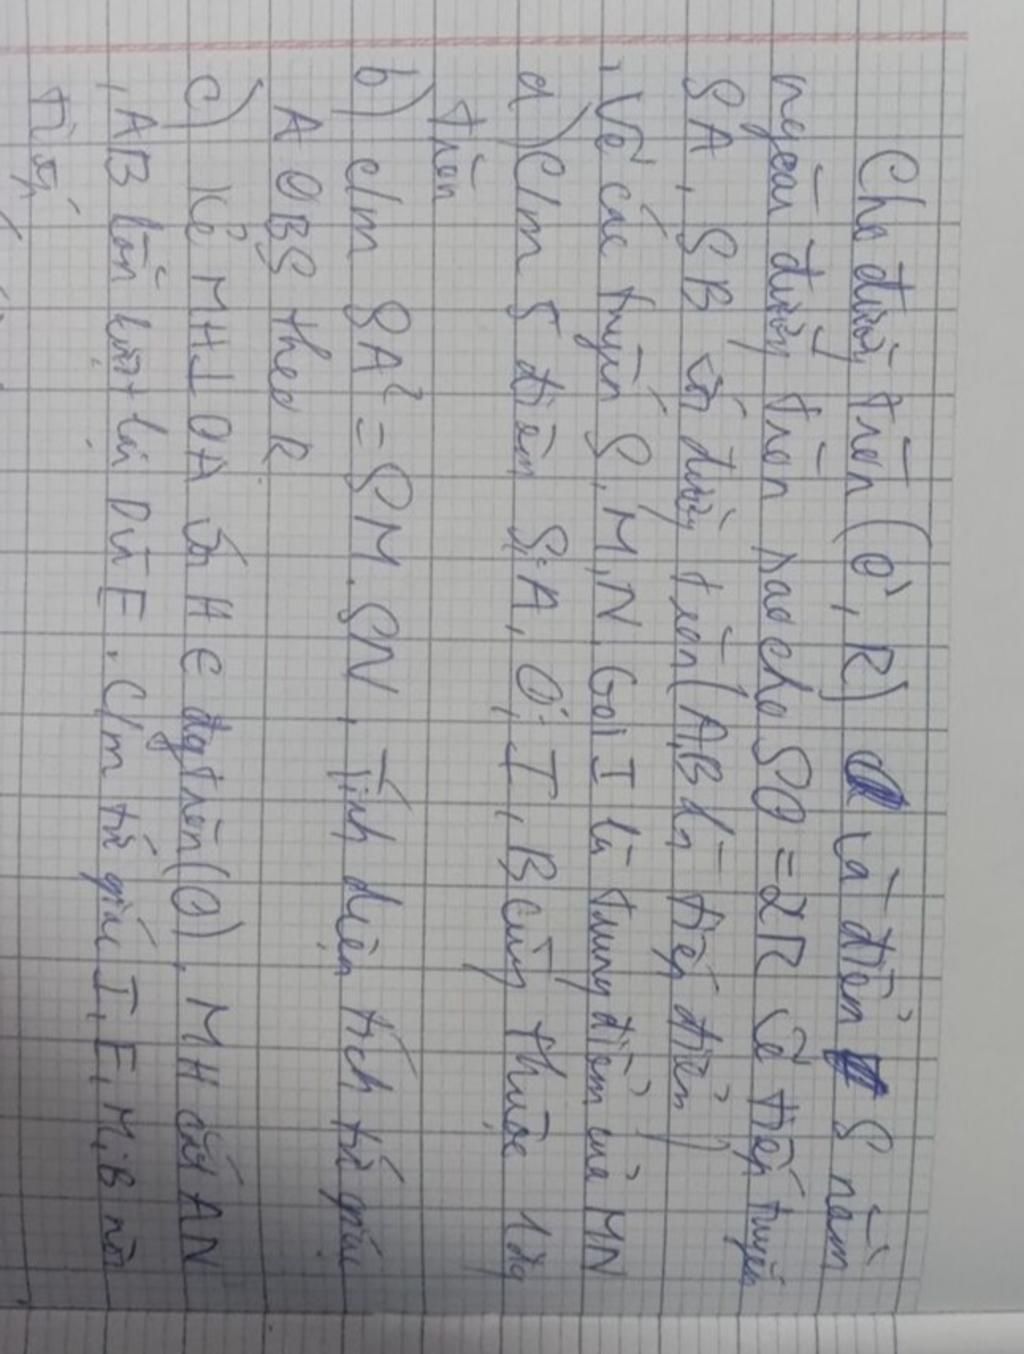 Cho đường tròn (O, R) là điểm S nằm
ngoài đường tròn sao cho SO = 2R vẽ tiếp tuyến
SA, SB với đường tròn (A, B là tiếp điểm)
, Vẽ cát tuyến S, M, N. Gọi I là trung điểm của MN
a) C/m 5 điểm S, A, O, I, B cùng thuộc 1 đg
tròn
b) c/m SA² = SM. SN, Tính diện tích tứ giác
AOBS theo R
c) Kẻ MH ⊥ OA và H ∈ đg tròn (O), MH cắt AN
, AB lần lượt tại D và E. C/m tứ giác I, E, M, B nội
tiếp